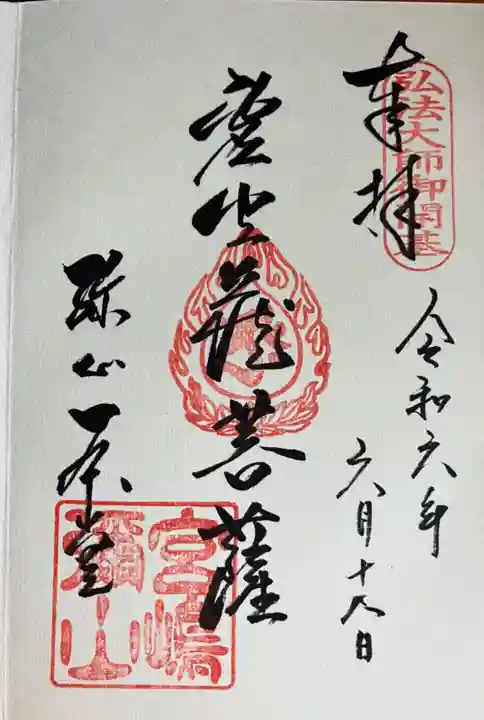 弘法大師御開基
奉拝
令和六年
六月十八日
虚空蔵菩薩
弥山本堂
宮嶋
彌山